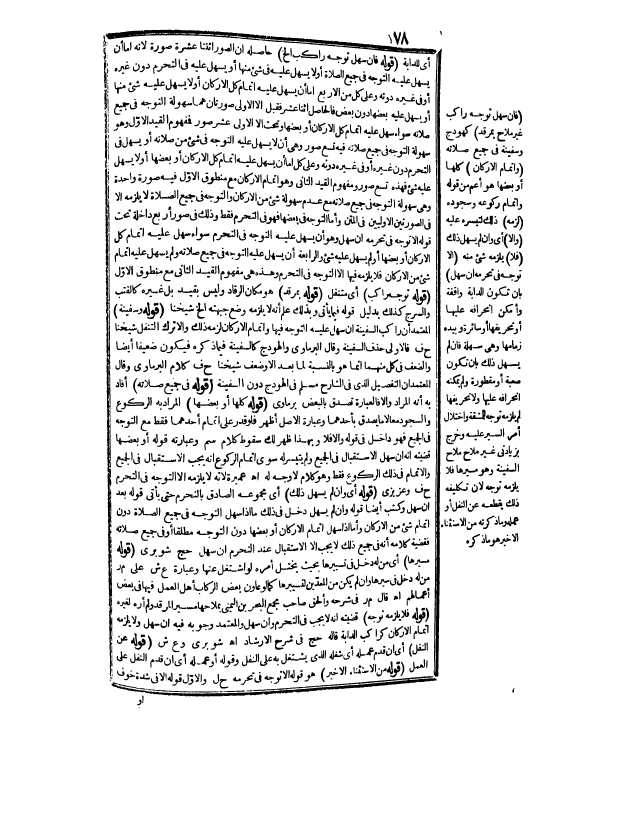 ١٧٨
أى للدابة (قوله فان سهل توجه راكب الخ) حاصله ان الصور اثنتا عشرة صورة لانه اما أن
يسهل عليه التوجه فى جميع الصلاة أولا يسهل عليه فى شئ منها أو يسهل عليه فى التحرم دون غيره
أو فى غيره دونه وعلى كل من الاربع اما أن يسهل عليه اتمام كل الاركان أولا يسهل عليه شئ منها
أو يسهل عليه بعضها دون بعض فالحاصل اثنا عشر فقبل الا الاولى صورتان هما سهولة التوجه فى جميع
صلاته سواء سهل عليه اتمام كل الاركان أو بعضها وتحت الا الاولى عشر صور فمفهوم القيد الاول وهو
سهولة التوجه فى جميع صلاته فيه تسع صور وهى أن لا يسهل عليه التوجه فى شئ من صلاته أو يسهل فى
التحرم دون غيره أو فى غيره دونه وعلى كل اما أن يسهل عليه اتمام كل الاركان أو بعضها أولا يسهل
عليه شئ فهذه تسع صور ومفهوم القيد الثانى وهو اتمام الاركان مع منطوق الاول فيه صورة واحدة
وهى سهولة التوجه فى جميع صلاته مع عدم سهولة شئ من الاركان والتوجه فى جميع الصلاة لا يلزمه الا
فى الصورتين الاوليين فى المتن وأما التوجه فى بعضها فهو فى التحرم فقط وذلك فى صور أربع داخلة تحت
قوله الا توجه فى تحرمه ان سهل وهو أن يسهل عليه التوجه فى التحرم سواء سهل عليه اتمام كل
الاركان أو بعضها أو لم يسهل عليه شئ والرابعة أن يسهل عليه التوجه فى جميع صلاته ولم يسهل عليه اتمام
شئ من الاركان فلا يلزمه فيها الا التوجه فى التحرم وهذه هى مفهوم القيد الثانى مع منطوق الاول
(قوله توجه راكب) أى متنفل (قوله بمرقد) هو مكان الرقاد وليس بقيد بل غيره كالقتب
والسرج كذلك بدليل قوله فيما يأتى وبذلك علم أنه لا يلزمه وضع جبهته الخ شيخنا (قوله وسفينة)
المعتمد أن راكب السفينة ان سهل عليه التوجه فيها واتمام الاركان لزمه ذلك والا ترك التنفل شيخنا
ح ف فالاولى حذف السفينة وقال البرماوى والهودج كالسفينة فيما ذكره فيكون ضعيفا أيضا
والضعف فى كل منهما انما هو بالنسبة لما بعد الا وضعف شيخنا ح ف كلام البرماوى وقال
المعتمدان التفصيل الذى فى الشارح مسلم فى الهودج دون السفينة (قوله فى جميع صلاته) أفاد
به أنه المراد والا فالعبارة تصدق بالبعض برماوى (قوله كلها أو بعضها) المراد به الركوع
والسجود معا لا ما يصدق بأحدهما وعبارة الاصل أظهر فلو قدر على اتمام أحدهما فقط مع التوجه
فى الجميع فهو داخل فى قوله والا فلا وبهذا ظهر لك سقوط كلام سم وعبارته قوله أو بعضها
قضيته انه ان سهل الاستقبال فى الجميع ولم يتيسر له سوى اتمام الركوع انه يجب الاستقبال فى الجميع
والاتمام فى ذلك الركوع فقط وهو كلام لا وجه له اه عميرة لانه لا يلزمه الا التوجه فى التحرم
ح ف وعزيزى (قوله أى وان لم يسهل ذلك) أى مجموعه الصادق بالتحرم حتى يأتى قوله بعد
ان سهل وكتب أيضا قوله وان لم يسهل دخل فى ذلك ما اذا سهل التوجه فى جميع الصلاة دون
اتمام شئ من الاركان وأما اذا سهل اتمام الاركان أو بعضها دون التوجه مطلقا أو فى جميع صلاته
فقضية كلامه أنه فى جميع ذلك لا يجب الا الاستقبال عند التحرم ان سهل حج شوبرى (قوله
مسيرها) أى من له دخل فى تسييرها بحيث يختل أمره لو اشتغل عنها وعبارة ع ش على م ر
من له دخل فى سيرها وان لم يكن من المعدين لتسييرها كما لو عاون بعض الركاب أهل العمل فيها فى بعض
أعمالهم اه قال م ر فى شرحه وألحق صاحب مجمع البحرين اليمنى بملاحها مسير المرقد ولم أره لغيره
(قوله فلا يلزمه توجه) قضيته انه لا يجب فى التحرم وان سهل والمعتمد وجوبه فيه ان سهل ولا يلزمه
اتمام الاركان كراكب الدابة قاله حج فى شرح الارشاد اه شوبرى وع ش (قوله عن
النفل) أى ان قدم عمله أى شغله الذى يشتغل به على النفل وقوله أو عمله أى ان قدم النفل على
العمل (قوله من الاستثناء الاخير) هو قوله الا توجه فى تحرمه ح ل والاول قوله الا فى شدة خوف
او
(فان سهل توجه راكب
غير ملاح بمرقد) كهودج
وسفينة فى جميع صلاته
(واتمام الاركان) كلها
أو بعضها هو أعم من قوله
واتمام ركوعه وسجوده
(لزمه) ذلك لتيسره عليه
(والا) أى وان لم يسهل ذلك
(فلا) يلزمه شئ منه (الا
توجه فى تحرمه ان سهل)
بان تكون الدابة واقفة
وأمكن انحرافه عليها
أو تحريفها أو سائرة وبيده
زمامها وهى سهلة فان لم
يسهل ذلك بان تكون
صعبة أو مقطورة ولم يمكنه
انحرافه عليها ولا تحريفها
لم يلزمه توجه للمشقة واختلال
أمر السير عليه وخرج
بزيادتى غير ملاح ملاح
السفينة وهو مسيرها فلا
يلزمه توجه لان تكليفه
ذلك يقطعه عن النفل أو
عمله وما ذكرته من الاستثناء
الاخير هو ما ذكره